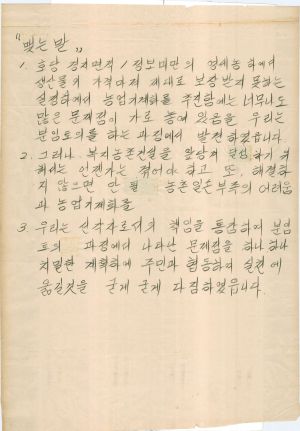 "맺는말"
1. 호당 경지면적 1정보미만의 영세농하에서
생산물의 가격마저 제대로 보장받지 못하는
실정하에서 농업기계화를 추진함에는 너무나도
많은 문제점이 가로 놓여 있음을 우리는
분임토의를 하는 과정에서 발견하였습니다.
2. 그러나 복지농촌건설을 앞당겨 실현하기 위
해서는 언젠가는 겪어야 하고 또, 해결하
지 않으면 안 될 농촌일손부족의 어려움
과 농업기계화를
3. 우리는 선각자로서의 책임을 통감하며 분임
토의 과정에서 나타난 문제점을 하나하나
치밀한 계획하에 주민과 협동하여 실천에
옮길것을 굳게 굳게 다짐하였읍니다.